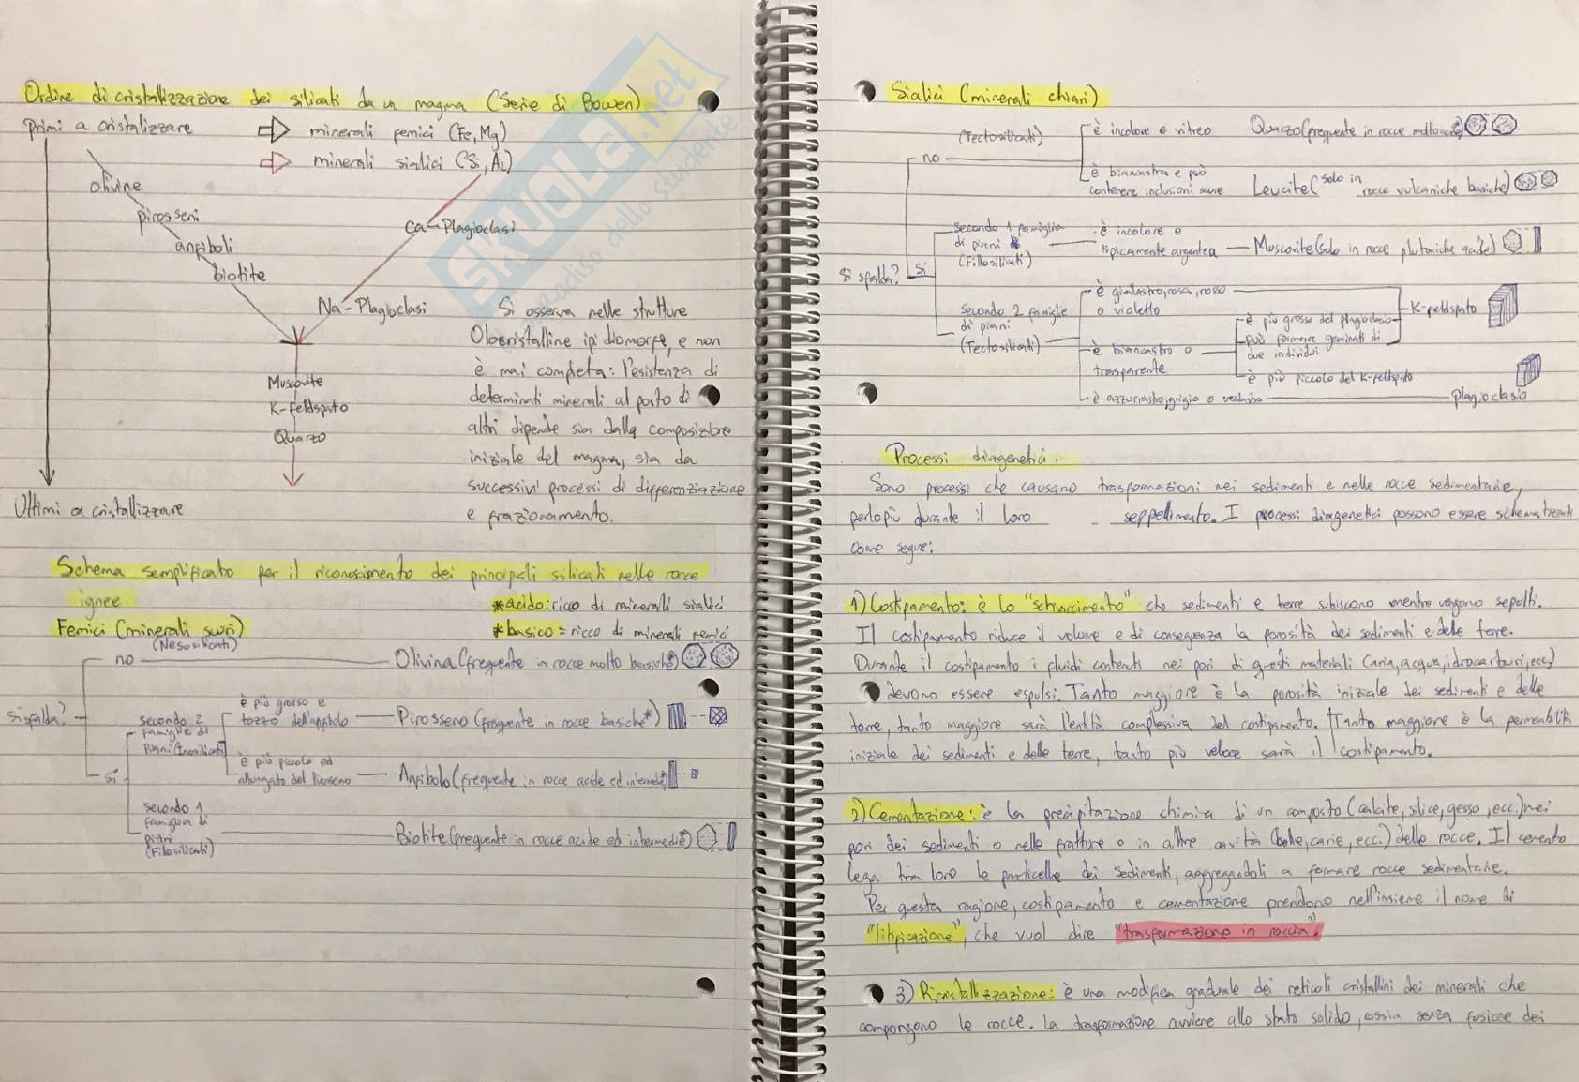 Ordine di cristallizzazione dei silicati da un magma (Serie di Bowen)
Primi a cristalizzare
minerali femici (Fe, Mg)
minerali sialici (Si, Al)
olivine
pirosseni
anfiboli
biotite
Ca-Plagioclasi
Na-Plagioclasi
Muscovite
K-feldspato
Quarzo
Ultimi a cristallizzare
Si osserva nelle strutture
Olocristalline ipidiomorfe, e non
è mai completa: l'esistenza di
determinati minerali al posto di
altri dipende sia dalla composizione
iniziale del magma, sia da
successivi processi di differenziazione
e frazionamento.
Schema semplificato per il riconoscimento dei principali silicati nelle rocce
ignee
*acido: ricco di minerali sialici
Femici (minerali scuri)
*basico = ricco di minerali femici
si sfalda?
no
(Nesosilicati)
Olivina (frequente in rocce molto basiche*)
sì
secondo 2
famiglie di
piani (Inosilicati)
è più grosso e
tozzo dell'anfibolo
Pirosseno (frequente in rocce basiche*)
è più piccolo ed
allungato del Pirosseno
Anfibolo (frequente in rocce acide ed intermedie*)
secondo 1
famiglia di
piani
(Fillosilicati)
Biotite (frequente in rocce acide ed intermedie*)
Skuola.net
paradiso dello studente
Sialici (minerali chiari)
Si sfalda?
no
(Tectosilicati)
è incolore e vitreo
Quarzo (frequente in rocce molto acide)
è biancastra e può
contenere inclusioni scure
Leucite (solo in
rocce vulcaniche basiche)
Si
secondo 1 famiglia
di piani
(Fillosilicati)
è incolore o
tipicamente argentea
Muscovite (solo in rocce plutoniche acide)
secondo 2 famiglie
di piani
(Tectosilicati)
è giallastro, rosa, rosso
o violetto
K-feldspato
è biancastro o
trasparente
è più grosso del plagioclasio
può formare geminati di
due individui
è più piccolo del K-feldspato
è azzurrastro, grigio o verdino
plagioclasio
Processi diagenetici
Sono processi che causano trasformazioni nei sedimenti e nelle rocce sedimentarie,
perlopiù durante il loro seppellimento. I processi diagenetici possono essere schematizzati
come segue:
1) Costipamento: è lo "schiacciamento" che sedimenti e terre subiscono mentre vengono sepolti.
Il costipamento riduce il volume e di conseguenza la porosità dei sedimenti e delle terre.
Durante il costipamento i fluidi contenuti nei pori di questi materiali (aria, acqua, idrocarburi, ecc)
devono essere espulsi. Tanto maggiore è la porosità iniziale dei sedimenti e delle
terre, tanto maggiore sarà l'entità complessiva del costipamento. Tanto maggiore è la permeabilità
iniziale dei sedimenti e delle terre, tanto più veloce sarà il costipamento.
2) Cementazione: è la precipitazione chimica di un composto (calcite, silice, gesso, ecc.) nei
pori dei sedimenti o nelle fratture o in altre cavità (bolle, carie, ecc.) delle rocce. Il cemento
lega tra loro le particelle dei sedimenti, aggregandoli a formare rocce sedimentarie.
Per questa ragione, costipamento e cementazione prendono nell'insieme il nome di
"litificazione", che vuol dire "trasformazione in roccia".
3) Ricristallizzazione: è una modifica graduale dei reticoli cristallini dei minerali che
compongono le rocce. La trasformazione avviene allo stato solido, ossia senza fusione dei